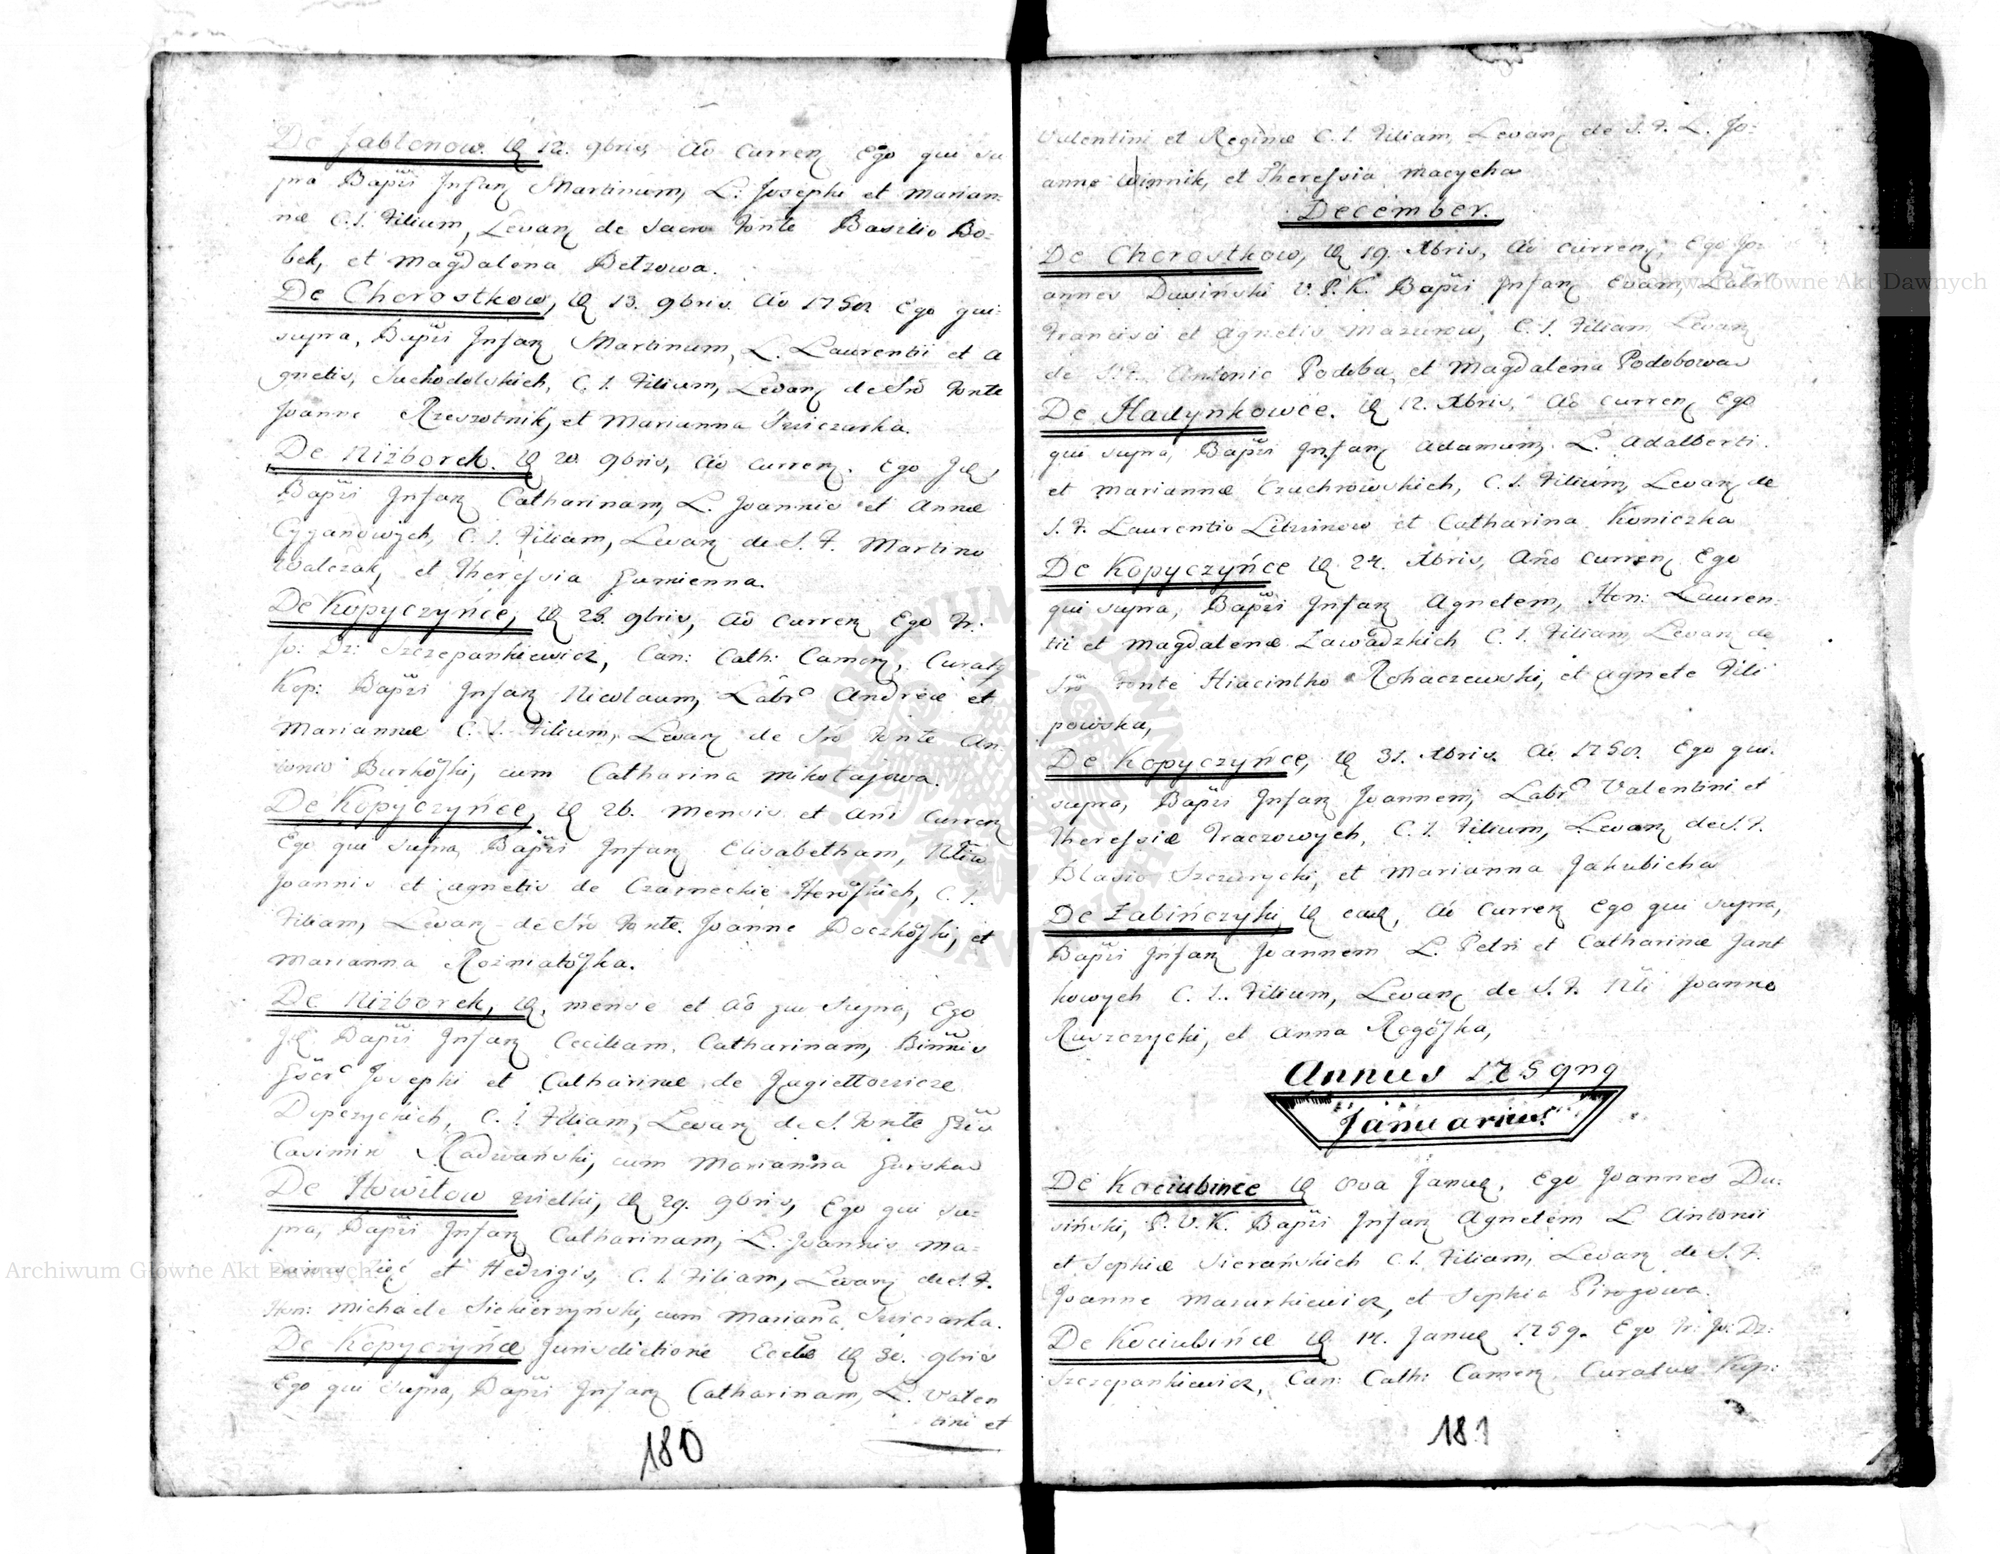 De Jabłonow. D 12. 9bris, Aō Curren Ego qui su
pra Bapzi Infan Martinum, L: Josephi et Marian
næ C. L. Filium, Levan de Sacro Fonte Basilio Bo=
bek, et Magdalena Betzowa.
De Chorostkow, D 13. 9bris. Aō 1758 Ego qui
supra, Bapzi Infan Martinum, L. Laurentii et A
gnetis, Suchodolskich, C. L. Filium, Levan de Sro Fonte
Joanne Rzeszotnik, et Marianna
De Niżborek. D 20. 9bris, Aō Curren. Ego
Bapzi Infan Catharinam, L. Joannis et Annæ
Cyganowych, C. L. Filiam, Levan de S. F. Martino
Walczak, et Theressia Gumienna.
De Kopyczyńce, D 28. 9bris, Aō Curren Ego Fr:
Jo: Dz: Szczepankiewicz, Can: Cath: Camen, Curatus
Kop: Bapzi Infan Nicolaum, Labr Andreæ et
Mariannæ C. L. Filium, Levan de Sro Fonte An
tonio Burkoski, cum Catharina Mikołajowa.
De Kopyczyńce, D 26. Mensis et Ani Curren
Ego qui supra Bapzi Infan Elisabetham,
Joannis et Agnetis de Czarneckie C. L.
Filiam, Levan de Sro Fonte. Joanne et
Marianna Rozniatoska.
De Niżborek, D. mense et Aō qui supra, Ego
Bapzi Infan Ceciliam, Catharinam, Binnis
Josephi et Catharinæ de
C. L. Filiam, Levan de S. Fonte
Casimiro Radwański, cum Marianna
De Howiłow wielki, D 29. 9bris, Ego qui su=
pra, Bapzi Infan Catharinam, L. Joannis Ma=
et Hedvigis, C. L. Filiam, Levan de S. F.
Hon: Michaele Siekierzyński, cum Mariana
De Kopyczyńce Jurisdictione Eccle D 30. 9bris
Ego qui supra, Bapzi Infan Catharinam, L. Valen
tini et
180
Valentini et Reginæ C. L. Filiam, Levan de S. F. L. Jo=
anne Winnik, et Theressia Macycha
December.
De Chorostkow, D 19. Xbris, Aō Curren, Ego Jo=
annes Dusiński V. P. K. Bapzi Infan Evam, Labr
Francisci et Agnetis Mazurow, C. L. Filiam Levan
de S. F. Antonio Podoba, et Magdalena Podobowa
De Hadynkowce. D 12. Xbris, Aō Curren Ego
qui supra, Bapzi Infan Adamum L. Adalberti
et Mariannæ Czuchrowskich, C. L. Filium, Levan de
S. F. Laurentio et Catharina Koniczka
De Kopyczyńce D 24. Xbris, Año Curren Ego
qui supra, Bapzi Infan Agnetem, Hon: Lauren
tii et Magdalenæ Zawadzkich C. L. Filiam Levan de
Sro Fonte Hiacintho Rohaczewski, et Agnete Fili
powska,
De Kopyczyńce, D 31. Xbris. Aō 1758. Ego qui
supra, Bapzi Infan Joannem, Labr Valentini et
Theressiæ Traczowych, C. L. Filium, Levan de S. F.
Blasio et Marianna Jakubicha
De Żabińczyki, D Aō Curren Ego qui supra,
Bapzi Infan Joannem L. Petri et Catharinæ Jant
kowych C. L. Filium, Levan de S. F. Joanne
Ruszczycki, et Anna Rogoska,
Annus 1759
Januarius
De Kociubince D Janu, Ego Joannes Du=
siński, P. V. K. Bapzi Infan Agnetem L Antonii
et Sophiæ Sierańskich C. L. Filiam, Levan de S. F.
Joanne Mazurkiewicz, et Sophia Pirogowa.
De Kociubińce D 14. Janu 1759. Ego Fr: Jo: Dz:
Szczepankiewicz, Can: Cath: Camen Curatus Kop:
181
Archiwum Główne Akt Dawnych
Archiwum Główne Akt Dawnych